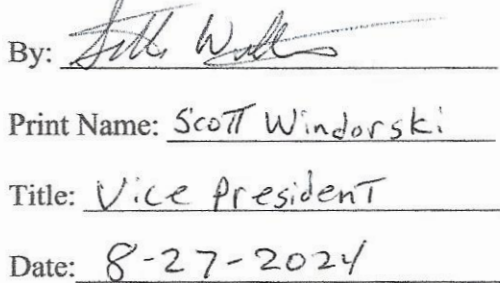 By:
Print Name: Scott Windorski
Title: Vice President
Date: 8-27-2024